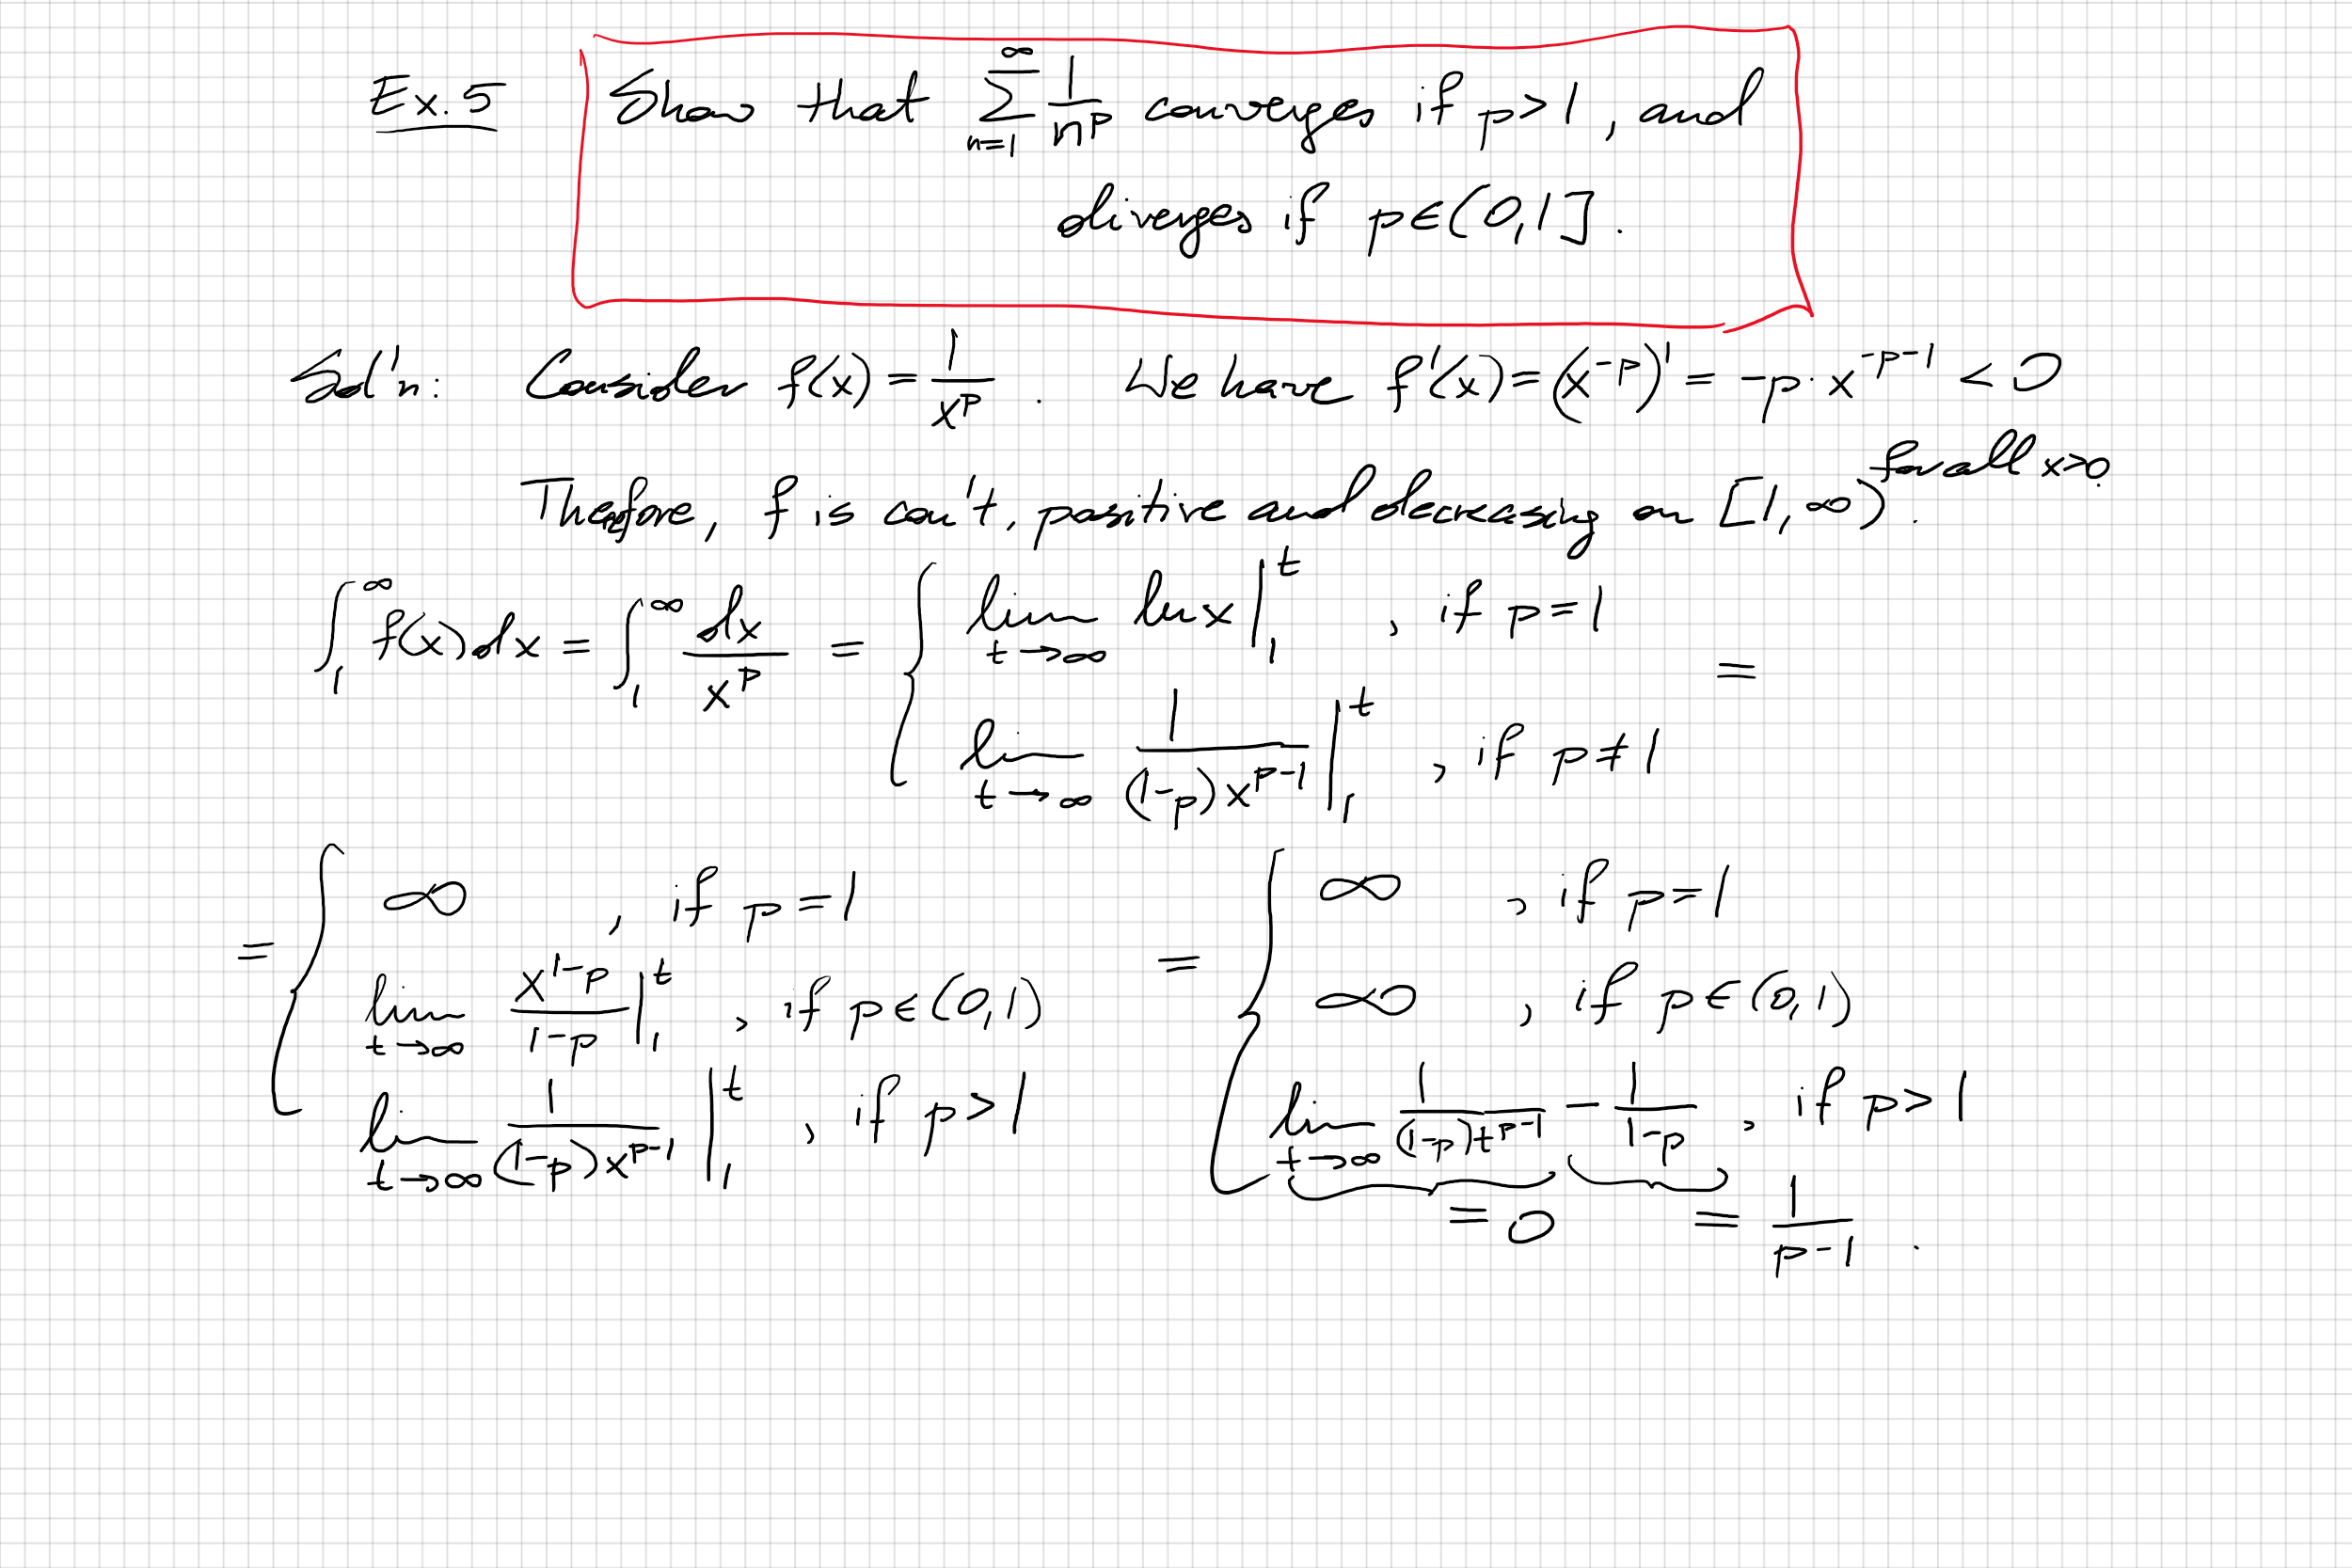 Ex. 5 Show that \sum_{n=1}^{\infty} \frac{1}{n^p} converges if p>1, and
diverges if p∈(0,1].
Sol'n: Consider f(x) = \frac{1}{x^p}. We have f'(x) = (x^{-p})' = -p·x^{-p-1} < 0
for all x>0.
Therefore, f is con't, positive and decreasing on [1,∞).
\int_1^∞ f(x)dx = \int_1^∞ \frac{dx}{x^p} = { \lim_{t→∞} ln x |_1^t , if p=1
=
\lim_{t→∞} \frac{1}{(1-p)x^{p-1}} |_1^t , if p≠1
= { ∞ , if p=1
\lim_{t→∞} \frac{x^{1-p}}{1-p} |_1^t , if p∈(0,1)
\lim_{t→∞} \frac{1}{(1-p)x^{p-1}} |_1^t , if p>1
= { ∞ , if p=1
∞ , if p∈(0,1)
\lim_{t→∞} \frac{1}{(1-p)t^{p-1}} - \frac{1}{1-p} , if p>1
= 0 = \frac{1}{p-1} .